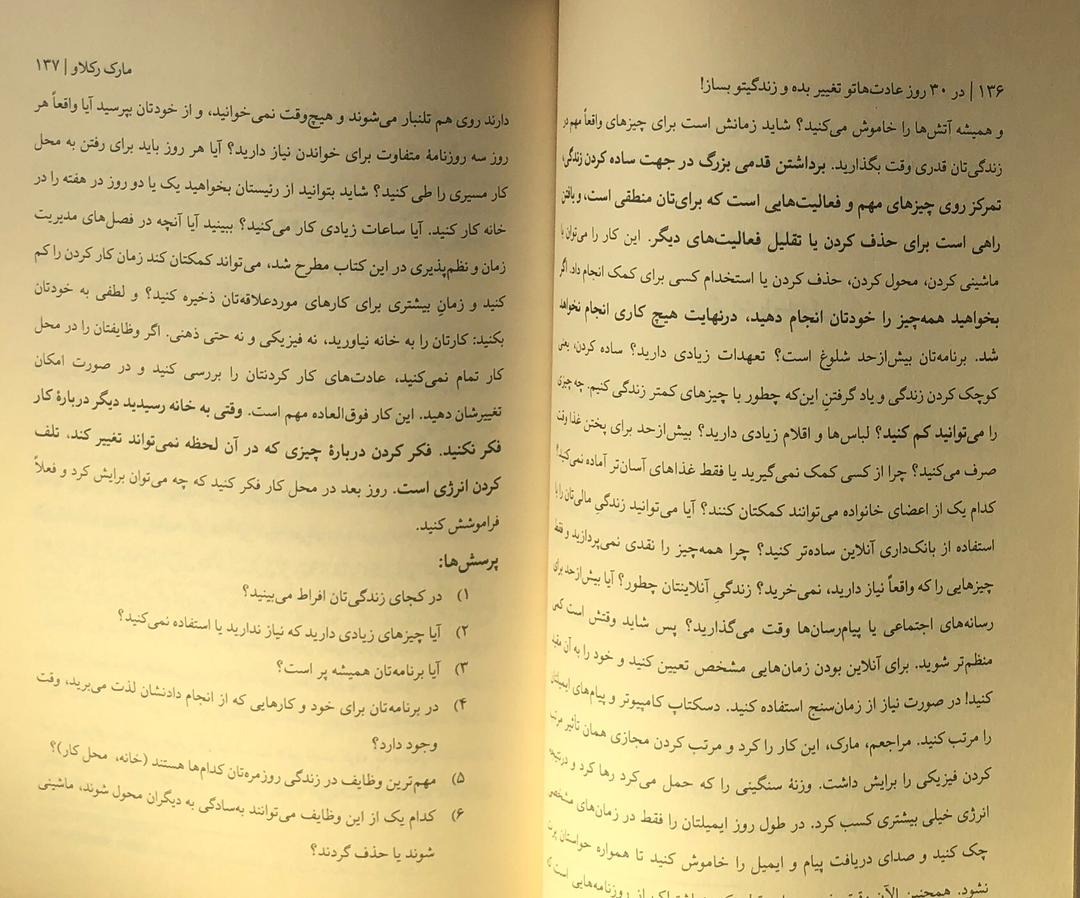 ۱۳۶ | در ۳۰ روز عادت‌هاتو تغییر بده و زندگیتو بساز!
و همیشه آتش‌ها را خاموش می‌کنید؟ شاید زمانش است برای چیزهای واقعاً مهم در
زندگی‌تان قدری وقت بگذارید. برداشتن قدمی بزرگ در جهت ساده کردن زندگی،
تمرکز روی چیزهای مهم و فعالیت‌هایی است که برای‌تان منطقی است، و یافتن
راهی است برای حذف کردن یا تقلیل فعالیت‌های دیگر. این کار را می‌توان با
ماشینی کردن، محول کردن، حذف کردن یا استخدام کسی برای کمک انجام داد. اگر
بخواهید همه‌چیز را خودتان انجام دهید، درنهایت هیچ کاری انجام نخواهد
شد. برنامه‌تان بیش‌ازحد شلوغ است؟ تعهدات زیادی دارید؟ ساده کردن، یعنی
کوچک کردن زندگی و یاد گرفتنِ این‌که چطور با چیزهای کمتر زندگی کنیم. چه چیزی
را می‌توانید کم کنید؟ لباس‌ها و اقلام زیادی دارید؟ بیش‌ازحد برای پختن غذا وقت
صرف می‌کنید؟ چرا از کسی کمک نمی‌گیرید یا فقط غذاهای آسان‌تر آماده نمی‌کنید؟
کدام یک از اعضای خانواده می‌توانند کمکتان کنند؟ آیا می‌توانید زندگیِ مالی‌تان را با
استفاده از بانک‌داری آنلاین ساده‌تر کنید؟ چرا همه‌چیز را نقدی نمی‌پردازید و فقط
چیزهایی را که واقعاً نیاز دارید، نمی‌خرید؟ زندگیِ آنلاینتان چطور؟ آیا بیش‌ازحد برای
رسانه‌های اجتماعی یا پیام‌رسان‌ها وقت می‌گذارید؟ پس شاید وقتش است کمی
منظم‌تر شوید. برای آنلاین بودن زمان‌هایی مشخص تعیین کنید و خود را به آن مقید
کنید! در صورت نیاز از زمان‌سنج استفاده کنید. دسکتاپ کامپیوتر و پیام‌های ایمیلتان
را مرتب کنید. مراجعم، مارک، این کار را کرد و مرتب کردن مجازی همان تأثیر مرتب
کردن فیزیکی را برایش داشت. وزنهٔ سنگینی را که حمل می‌کرد رها کرد و درنتیجه
انرژی خیلی بیشتری کسب کرد. در طول روز ایمیلتان را فقط در زمان‌های مشخصی
چک کنید و صدای دریافت پیام و ایمیل را خاموش کنید تا همواره حواستان پرت
نشود. همچنین الآن وقت
مارک رکلاو | ۱۳۷
دارند روی هم تلنبار می‌شوند و هیچ‌وقت نمی‌خوانید، و از خودتان بپرسید آیا واقعاً هر
روز سه روزنامهٔ متفاوت برای خواندن نیاز دارید؟ آیا هر روز باید برای رفتن به محل
کار مسیری را طی کنید؟ شاید بتوانید از رئیستان بخواهید یک یا دو روز در هفته را در
خانه کار کنید. آیا ساعات زیادی کار می‌کنید؟ ببینید آیا آنچه در فصل‌های مدیریت
زمان و نظم‌پذیری در این کتاب مطرح شد، می‌تواند کمکتان کند زمان کار کردن را کم
کنید و زمانِ بیشتری برای کارهای موردعلاقه‌تان ذخیره کنید؟ و لطفی به خودتان
بکنید: کارتان را به خانه نیاورید، نه فیزیکی و نه حتی ذهنی. اگر وظایفتان را در محل
کار تمام نمی‌کنید، عادت‌های کار کردنتان را بررسی کنید و در صورت امکان
تغییرشان دهید. این کار فوق‌العاده مهم است. وقتی به خانه رسیدید دیگر دربارهٔ کار
فکر نکنید. فکر کردن دربارهٔ چیزی که در آن لحظه نمی‌تواند تغییر کند، تلف
کردن انرژی است. روز بعد در محل کار فکر کنید که چه می‌توان برایش کرد و فعلاً
فراموشش کنید.
پرسش‌ها:
۱) در کجای زندگی‌تان افراط می‌بینید؟
۲) آیا چیزهای زیادی دارید که نیاز ندارید یا استفاده نمی‌کنید؟
۳) آیا برنامه‌تان همیشه پر است؟
۴) در برنامه‌تان برای خود و کارهایی که از انجام دادنشان لذت می‌برید، وقت
وجود دارد؟
۵) مهم‌ترین وظایف در زندگی روزمره‌تان کدام‌ها هستند (خانه، محل کار)؟
۶) کدام یک از این وظایف می‌توانند به‌سادگی به دیگران محول شوند، ماشینی
شوند یا حذف گردند؟